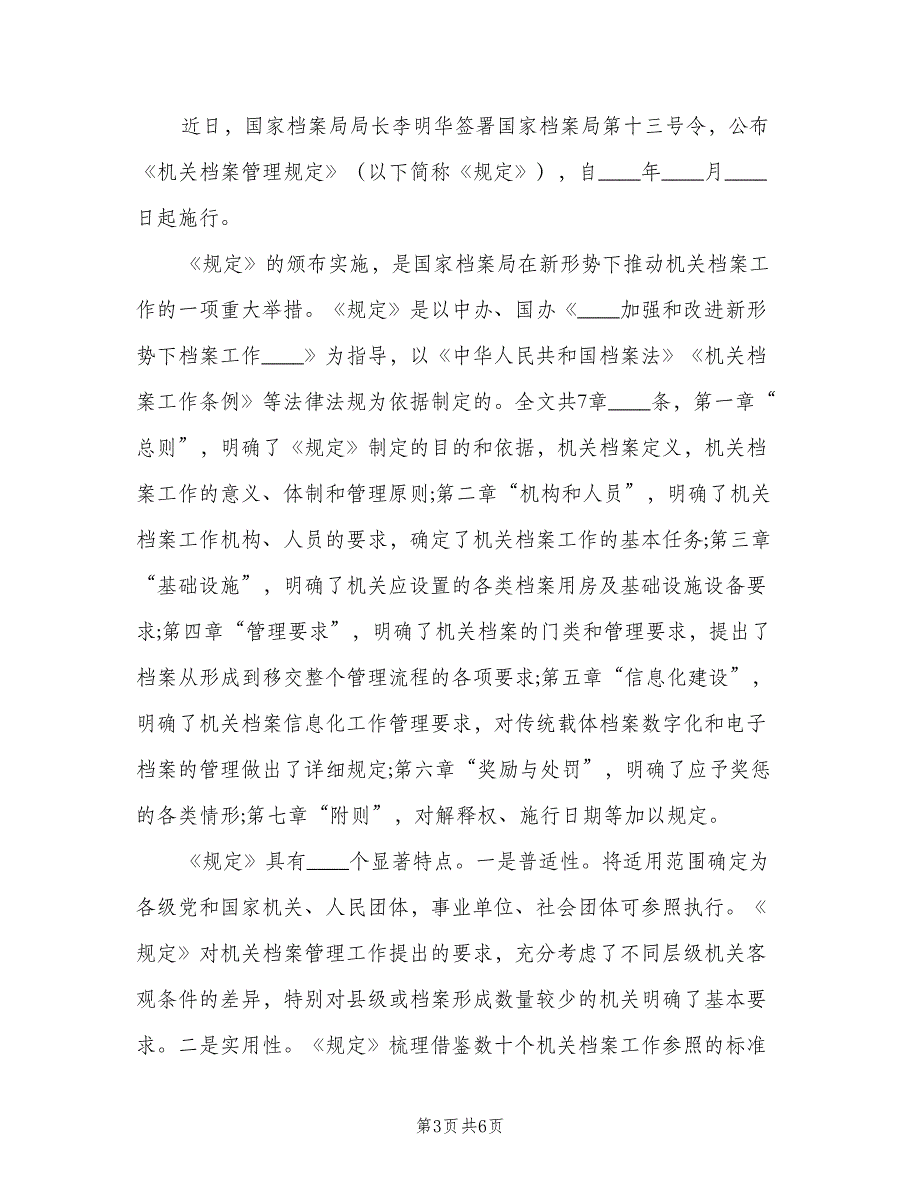 近日，国家档案局局长李明华签署国家档案局第十三号令，公布
《机关档案管理规定》（以下简称《规定》），自____年____月____
日起施行。
《规定》的颁布实施，是国家档案局在新形势下推动机关档案工
作的一项重大举措。《规定》是以中办、国办《____加强和改进新形
势下档案工作____》为指导，以《中华人民共和国档案法》《机关档
案工作条例》等法律法规为依据制定的。全文共7章____条，第一章“
总则”，明确了《规定》制定的目的和依据，机关档案定义，机关档
案工作的意义、体制和管理原则;第二章“机构和人员”，明确了机关
档案工作机构、人员的要求，确定了机关档案工作的基本任务;第三章
“基础设施”，明确了机关应设置的各类档案用房及基础设施设备要
求;第四章“管理要求”，明确了机关档案的门类和管理要求，提出了
档案从形成到移交整个管理流程的各项要求;第五章“信息化建设”，
明确了机关档案信息化工作管理要求，对传统载体档案数字化和电子
档案的管理做出了详细规定;第六章“奖励与处罚”，明确了应予奖惩
的各类情形;第七章“附则”，对解释权、施行日期等加以规定。
《规定》具有____个显著特点。一是普适性。将适用范围确定为
各级党和国家机关、人民团体，事业单位、社会团体可参照执行。《
规定》对机关档案管理工作提出的要求，充分考虑了不同层级机关客
观条件的差异，特别对县级或档案形成数量较少的机关明确了基本要
求。二是实用性。《规定》梳理借鉴数十个机关档案工作参照的标准
第3页 共6页